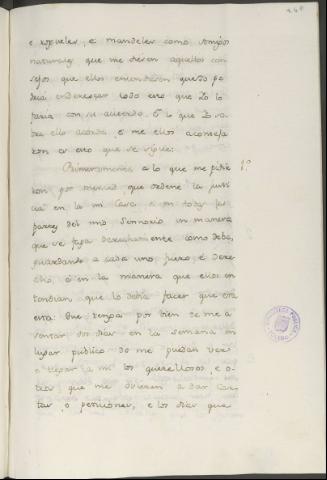 e rogueles, e mandeles como Amigos
naturales que me diesen aquellos con
sejos que ellos entendiesen que se po
dria enderezar todo esto que Yo lo
faria con su acuerdo. E lo que
ellos acorda, e me ellos aconseja
ron es esto que se sigue:
Primeramente a lo que me pidie 1º
ron por merced que ordene la justi
cia en la mi Casa e en todas las
partes del mio Sennorio, en manera
que se faga derechamente como debe,
guardando a cada uno fuero, e dere
cho, e en la manera que ellos en
tendian que lo debia facer que era
esta: Que tenga por bien de me a
sentar dos dias en la semana en
lugar público do me puedan ver
e llegar a mi los querellosos, e o
tros que me ovieren a dar Car
tas, o peticiones, e los dias que